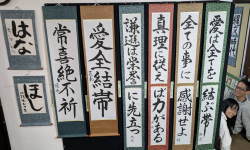 愛は全てを結ぶ帯
全ての事に感謝せよ
真理に従えば力がある
謙遜は栄誉に先立つ
愛全結帯
常喜絶不祈
はな
ほし